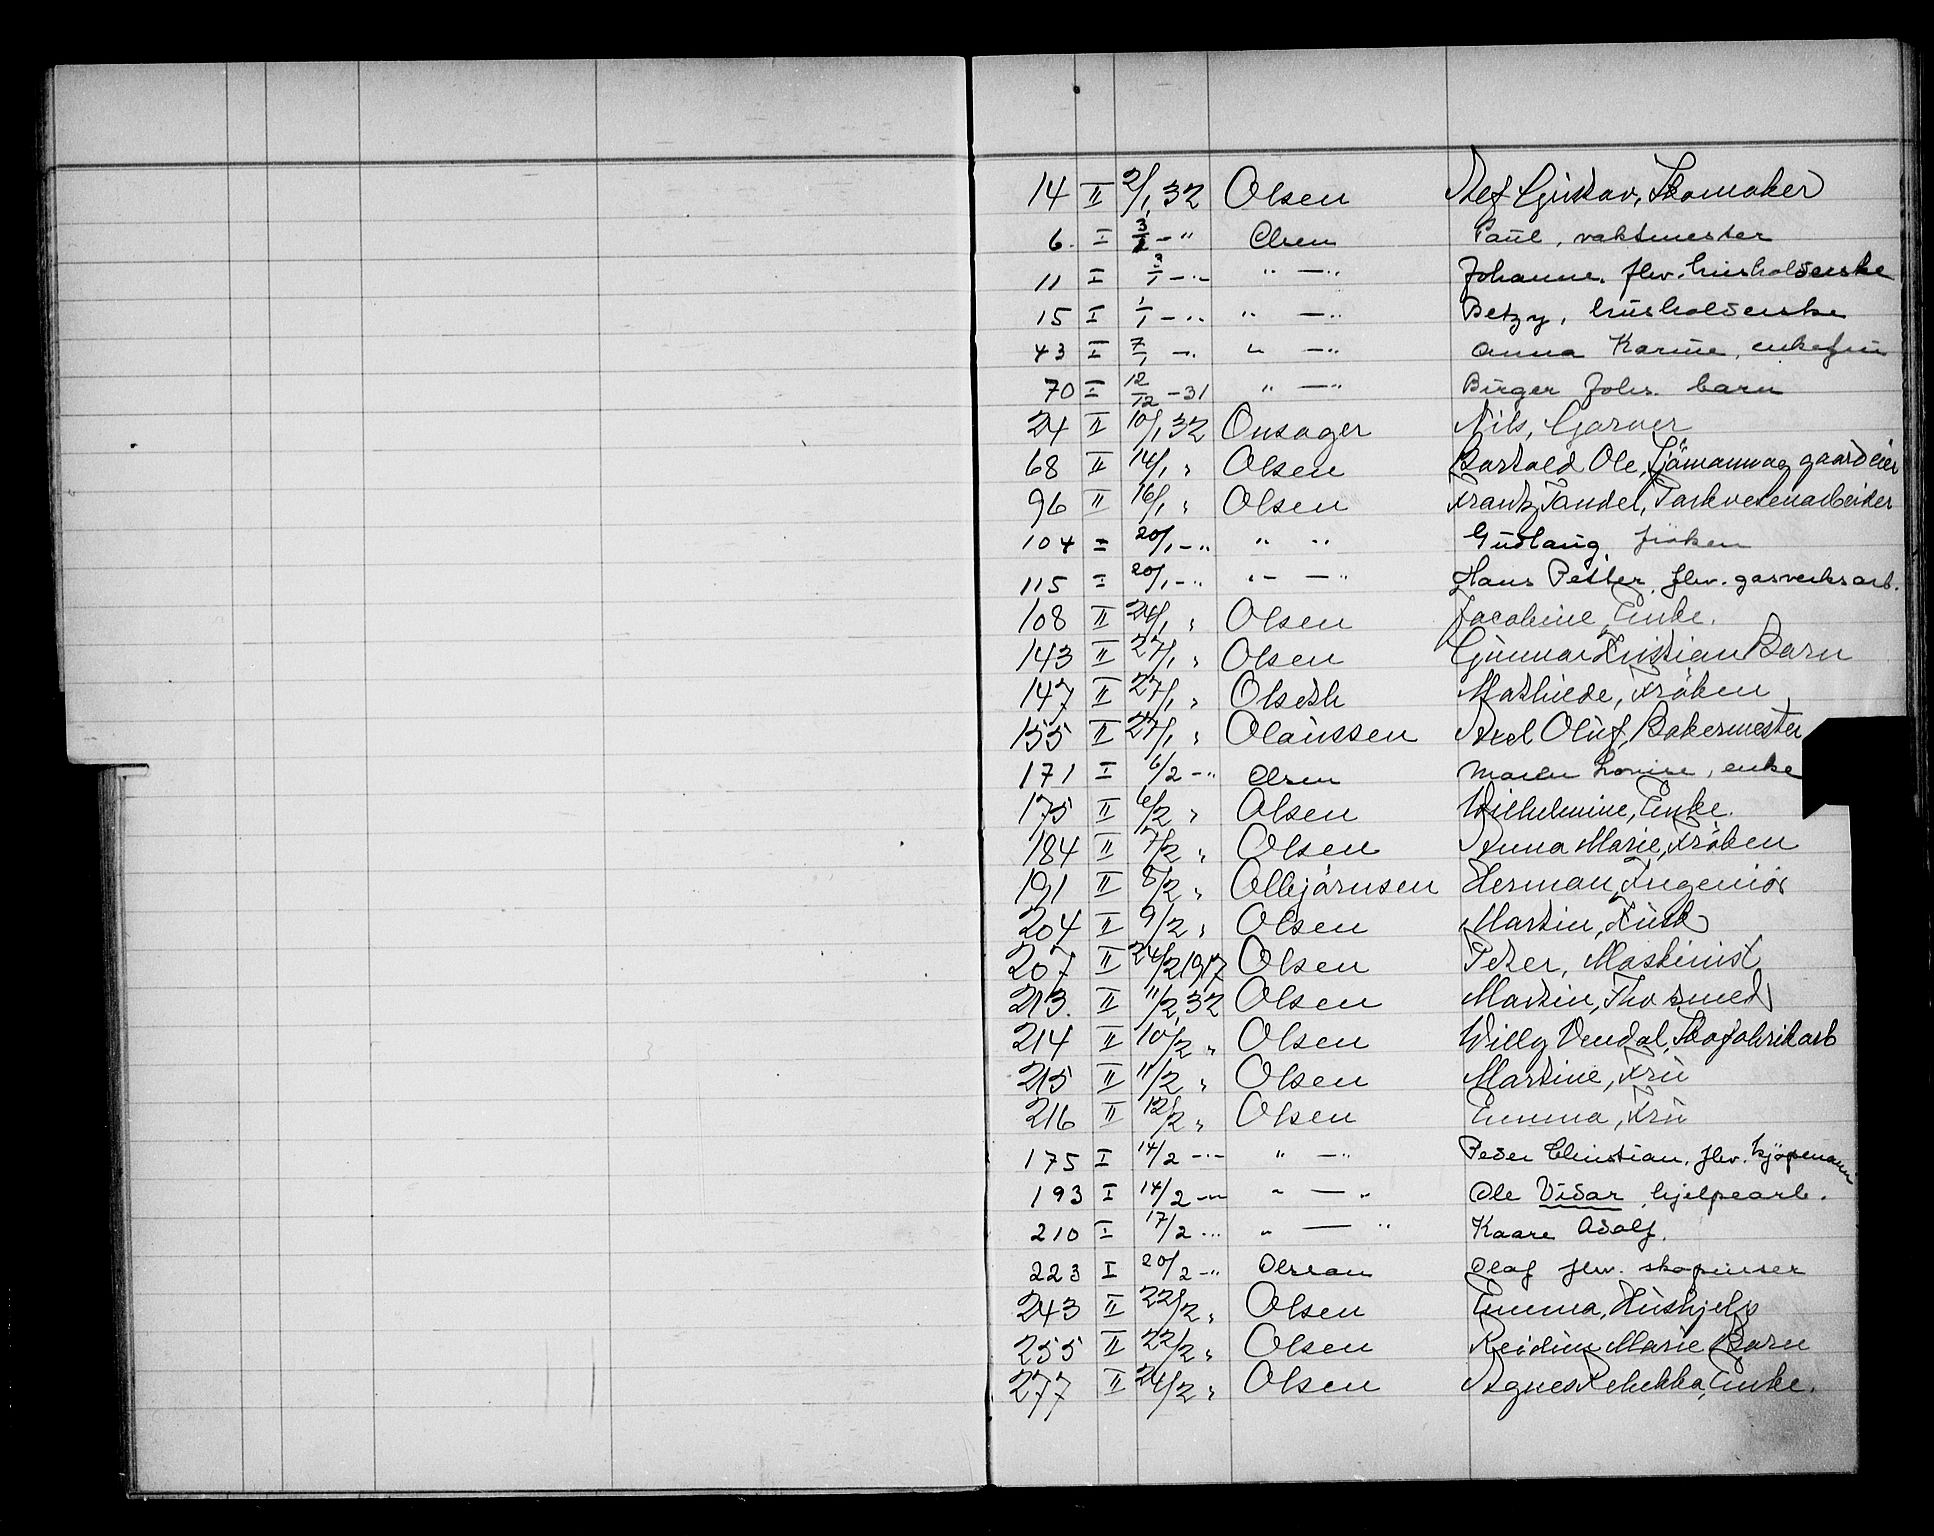 14 II 2/1, 32 Olsen Alf Gustav, Skomaker
6. I 3/2 - " Olsen Paul, vaktmester
11 I 3/1 - " " - " Johanne, fhv. husholderske
15 I 1/1 - " " - " Betzy, husholderske
43 I 7/1 - " " - " Anna Karine, enkefru
70 I 12/12 - 31 " - " Birger Johs. barn
24 II 10/1, 32 Onsager Nils, Garver
68 II 14/1 " Olsen Bartold Ole, Sjömann og gaardeier
96 II 16/1 " Olsen Frantz Tandel, Parkvesenarbeider
104 I 20/1 - " " " Gudlaug, fröken
115 I 20/1 - " " - " Hans Petter, fhv. gasverksarb.
108 II 24/1 " Olsen Jacobine, Enke.
143 II 27/1 " Olsen Gunnar Kristian Barn
147 II 27/1 " Olseth Mathilde, Fröken
155 II 27/1 " Olaussen Axel Oluf, Bakermester
171 I 6/2 - " Olsen Maren Lovise, enke
175 II 6/2 " Olsen Wilhelmine, Enke.
184 II 7/2 " Olsen Anna Marie, Fröken
191 II 8/2 " Olbjörnsen Herman, Ingeniör
204 II 9/2 " Olsen Martin, Kusk
207 II 24/2 1917 Olsen Peter, Maskinist
213. II 11/2, 32 Olsen Martin, Fhv smed
214 II 10/2 " Olsen Willy Vendal, Skofabrikarb
215 II 11/2 " Olsen Martine, Fru
216 II 12/2 " Olsen Emma, Fru
175 I 14/2 - " " - " Peder Christian, fhv. kjøpmann
193 I 14/2 - " " - " Ole Vidar, hjelpearb.
210 I 17/2 " " - " Kaare Adolf.
223 I 20/2 - " Olsson Olaf fhv. skopusser
243 II 22/2 " Olsen Emma, Hushjelp
255 II 22/2 " Olsen Reidun Marie Barn
277 II 24/2 " Olsen Agnes Rebekka, Enke.